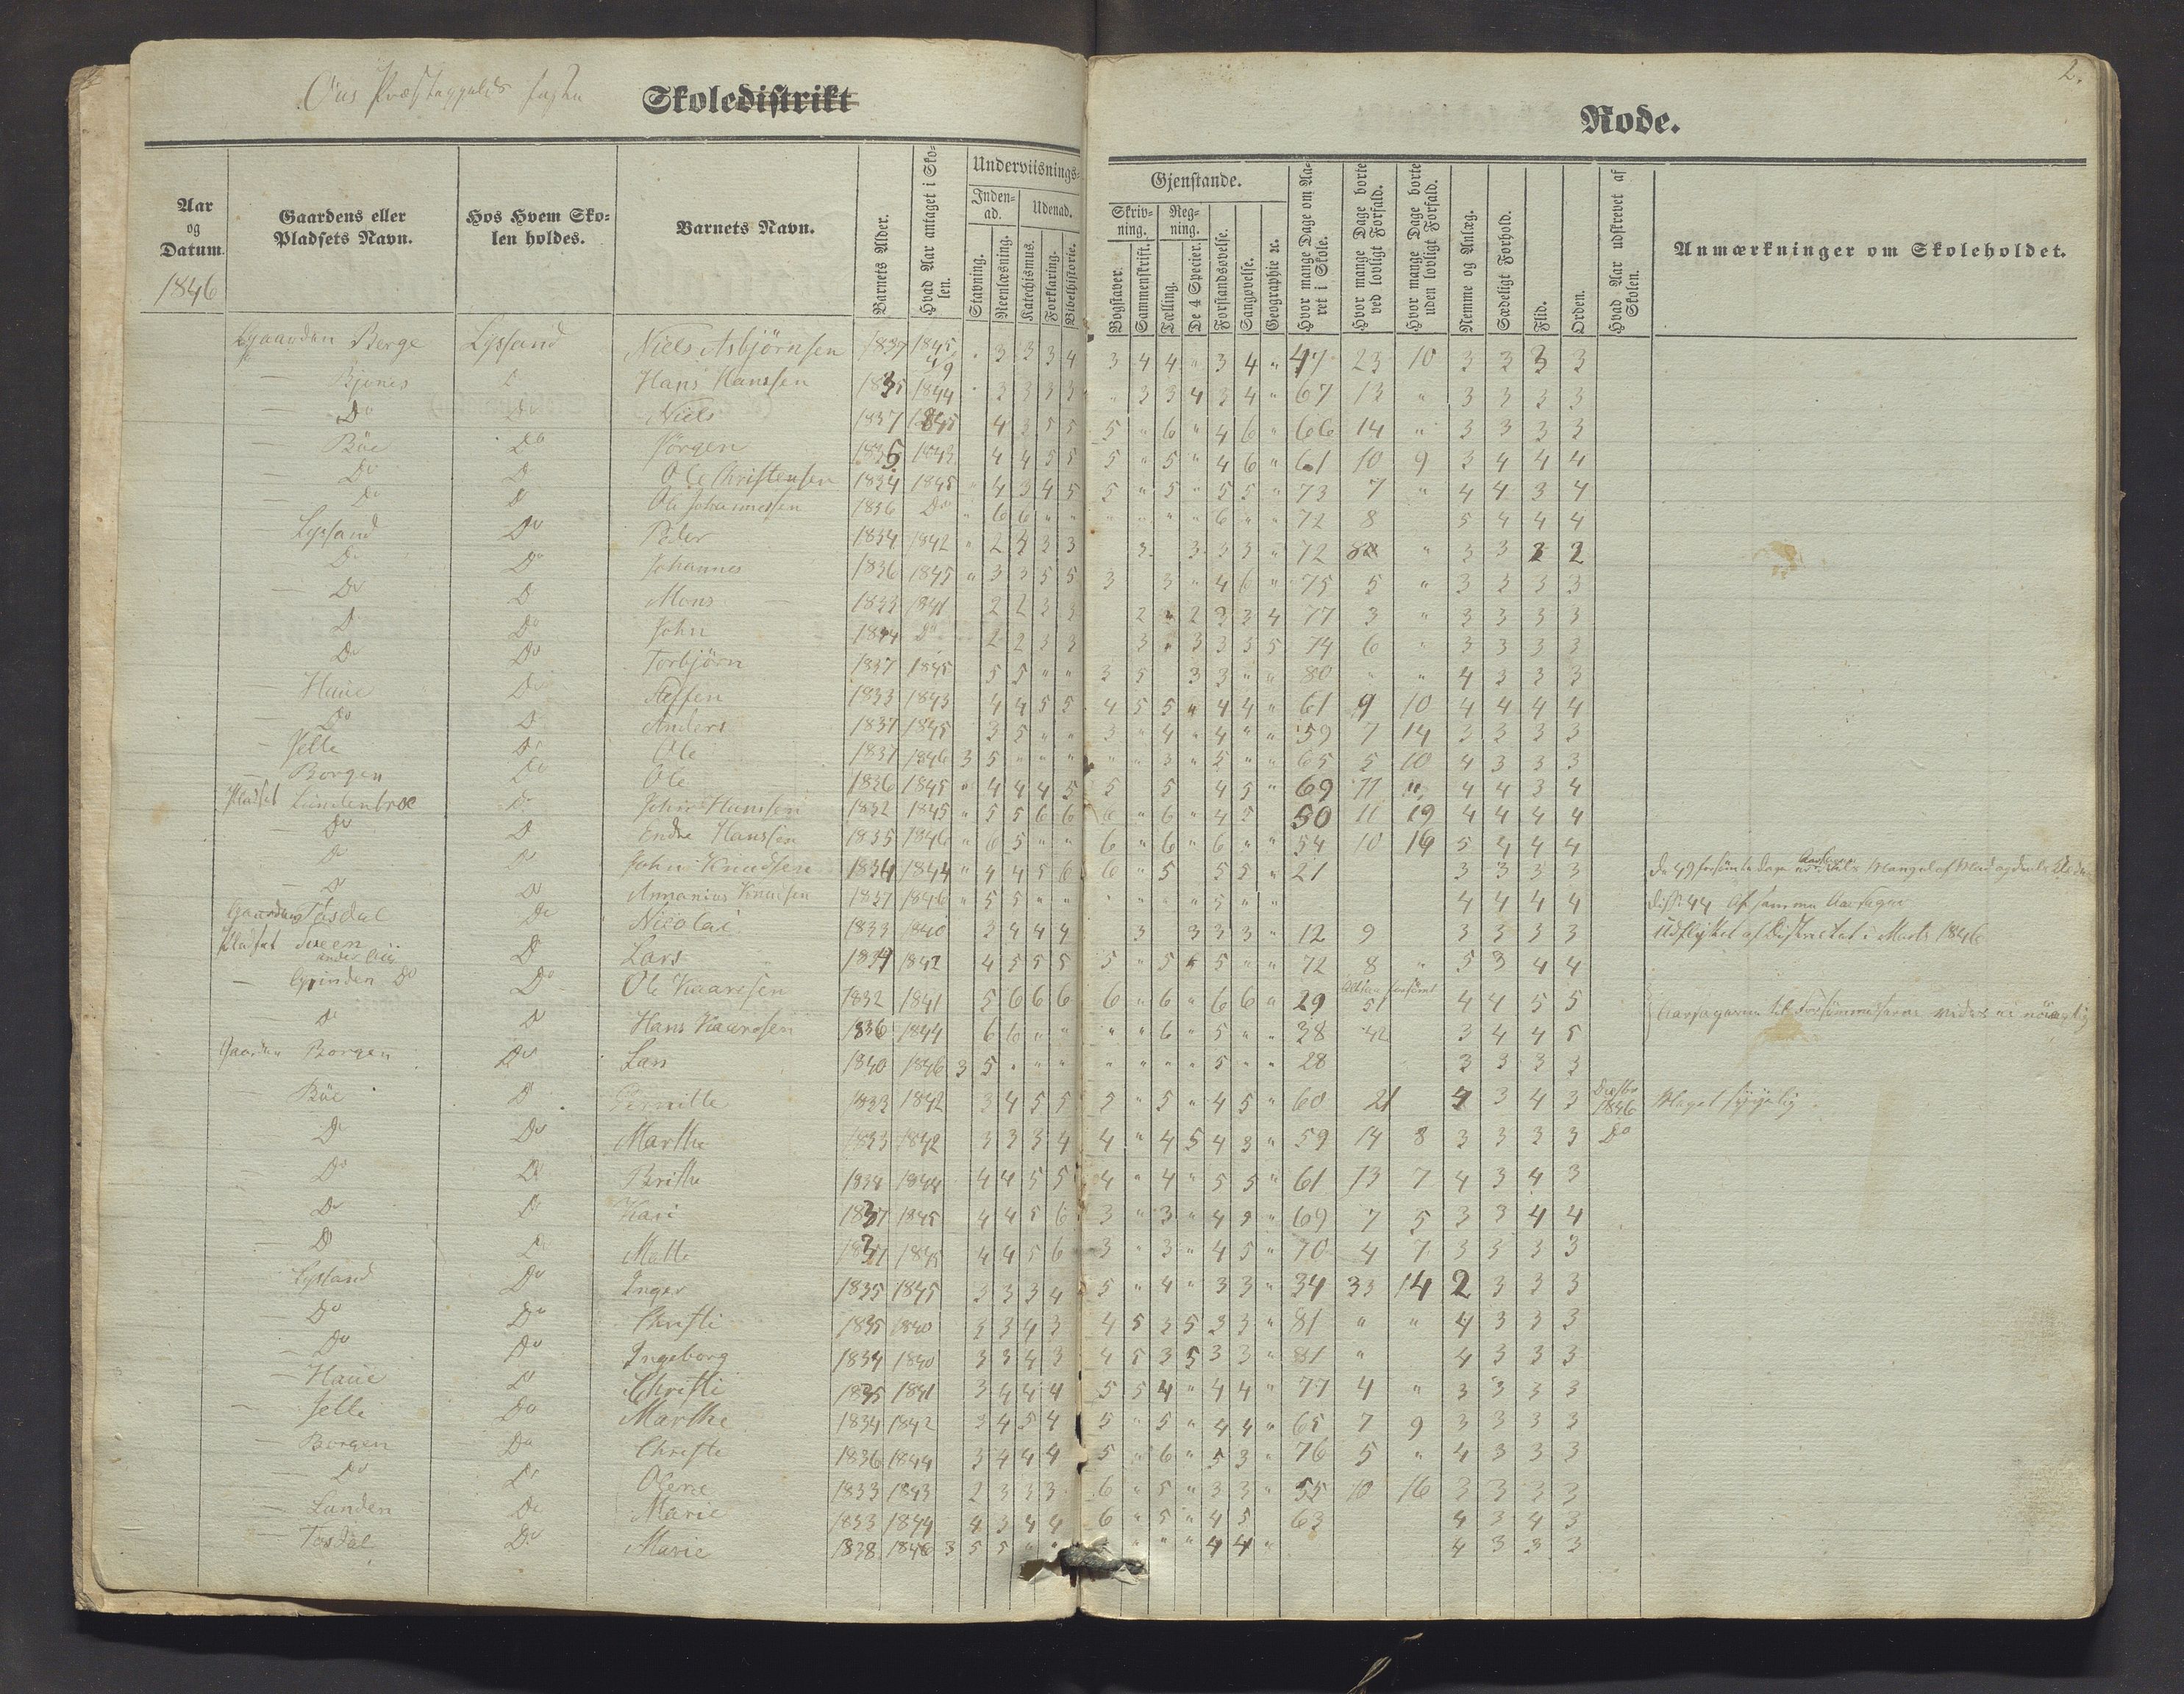 Skoledistrikt
Rode.
2.
Aar og Datum.
1846
Gaardens eller Pladsets Navn.
Hos Hvem Skolen holdes.
Barnets Navn.
Barnets Alder.
Hvad Aar antaget i Skolen.
Underviisnings-
Gjenstande.
Indenad.
Udenad.
Stavning.
Reenlæsning.
Katechismus.
Forklaring.
Bibelhistorie.
Skrivning.
Regning.
Bogstaver.
Sammenskrift.
Tælling.
De 4 Specier.
Forstandsøvelse.
Sangøvelse.
Geographie ꝛc.
Hvor mange Dage om Aaret i Skole.
Hvor mange Dage borte ved lovligt Forfald.
Hvor mange Dage borte uden lovligt Forfald.
Nemme og Anlæg.
Sædeligt Forhold.
Flid.
Orden.
Hvad Aar udskrevet af Skolen.
Anmærkninger om Skoleholdet.
Gaarden Berge Lyssand Niels Asbjörnsen 1837 1845 " 3 3 3 4 3 4 4 " 3 4 " 47 23 10 3 3 3 3
— Bjenes Do Hans Hanssen 1835 1844 " 3 3 3 3 " 3 3 4 3 4 " 67 13 " 3 3 3 3
— Do Do Niels 1837 1845 4 3 5 5 5 " 6 " 4 6 " 66 14 " 3 3 3 3
— Böe Do Jörgen 1843 4 4 5 5 5 " 5 " 4 6 " 61 10 9 3 4 4 4
— Do Do Ole Christensen 1834 1845 " 4 3 4 5 5 " 5 " 5 5 " 73 7 " 4 4 3 4
— Do Do Ole Johannessen 1836 Do " 6 6 " " " " " " 6 " " 72 8 5 4 4 4
Lyssand Do Peder 1834 1842 " 2 3 3 3. 3. 3 3 " 72 " 3 3 2
— Do Do Johannes 1836 1845 " 3 3 5 5 3 3 " 4 6 " 75 5 " 3 3 3 3
— Do Do Mons 1833 1841 2 2 3 3 2 " 2 3 3 4 77 3 " 3 3 3 3
Do Do John 1834 Do 2 2 3 3 3 " 3 3 3 5 74 6 " 3 3 3 3
Do Do Torbjörn 1837 1845 5 5 " " 3 5 3 3 " " 80 " " 4 3 3 3
— Haue Do Steffen 1833 1843 4 4 5 5 4 5 5 " 4 4 " 61 9 10 4 4 4 4
— Do Do Anders 1837 1845 3 5 " " 3 " 4 " 4 " " 59 7 14 3 3 3 3
— Jelle Do Ole 1837 1846 3 5 " " " " " 3 " 5 " " 65 5 10 4 3 3 3
— Borgen Do Ole 1836 1845 " 4 4 4 5 5 5 4 5 " 69 11 " 4 4 3 4
Pladset Lundenbroe Do John Hanssen 1832 1845 " 5 5 6 6 6 " 6 " 4 5 " 50 11 19 4 4 4 4
— Do Do Endre Hanssen 1835 1846 " 6 5 " " 6 " 6 " 6 " " 54 10 16 5 4 4 4
— Do Do John Knudsen 1834 1844 " 4 4 5 6 6 " 5 5 5 " 21 3 3 3 3
— Do Do Annanias Knudsen 1837 1846 " 5 5 " " " " " " 5 " " 4 4 4 4
Gaarden Tösdal Do Nicolai 1833 1840 3 4 4 4 3 3 3 3 " 12 9 3 3 3 3 Udflyttet af Districtet i Marts 1846
Pladset Do Lars 1834 1842 4 5 5 5 5 " 5 " 5 " " 72 8 " 5 3 4 4
— Grinden Do Do Ole Kaarssen 1832 1841 5 6 6 6 6 " 6 " 6 6 " 29 51 4 4 5 5
— Do Do Hans Kaarssen 1836 1844 6 6 " " " " 6 " 5 " " 38 42 3 4 4 5
Gaarden Borgen Do Lars 1840 1846 3 5 " " " " " " " 5 " " 28 3 3 3 3
— Böe Do Pernille 1833 1842 3 4 5 5 5 " 5 " 4 5 " 60 21 4 3 4 3 1846 Meget sygelig
Do Do Marthe 1833 1842 3 3 3 4 4 " 4 5 4 3 " 59 14 8 3 3 3 3 Do
— Do Do Brithe 1834 1844 4 4 5 5 4 " 4 " 5 5 " 61 13 7 4 3 4 3
— Do Do Kari 1837 1845 4 4 5 6 3 " 3 " 4 " 69 7 5 3 3 4 4
— Do Do Malle 1837 1845 4 4 5 6 3 " 3 " 4 5 " 70 4 7 3 3 3 3
Lyssand Do Inger 1835 1845 3 3 3 4 5 " 4 " 3 3 " 34 33 14 2 3 3 3
— Do Do Christi 1835 1840 3 3 4 3 4 5 3 5 3 3 " 81 " " 4 3 3 3
— Do Do Ingeborg 1834 1840 3 3 4 3 4 5 3 5 3 3 " 81 " 4 3 3 3
— Haue Do Christi 1835 1841 3 4 4 4 5 5 4 " 4 4 " 77 4 " 3 3 3 3
— Jelle Do Marthe 1834 1842 3 4 5 4 5 " 5 " 4 4 " 65 7 9 3 3 3 3
— Borgen Do Christi 1836 1844 3 4 4 4 5 " 6 " 5 3 " 76 5 " 4 3 3 3
— Do Do Olene 1833 1843 2 3 3 3 6 " 5 " 3 3 " 55 10 16 3 3 3 3
— Lunden Do Marie 1833 1844 4 3 4 4 6 " 5 " 4 5 63 4 3 4 3
— Tösdal Do Marie 1838 1846 3 5 5 " " " " 4 4 " 4 3 3 3